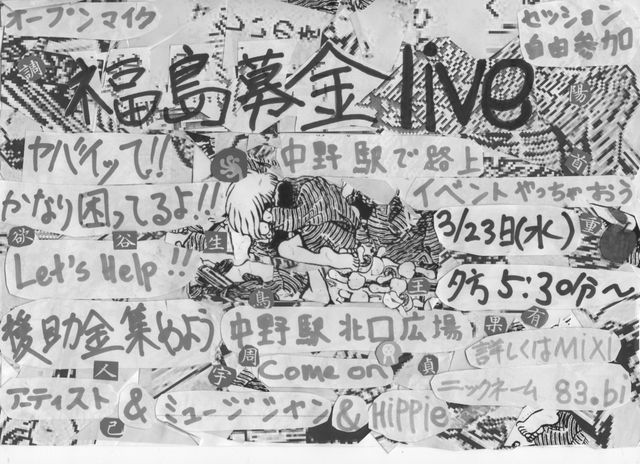 オープンマイク
セッション
自由参加
福島募金live
ヤバイッて!!
中野駅で路上
かなり困ってるよ!!
イベントやっちゃおう
3/23日(水)
Let's Help!!
夕方5:30分〜
援助金集めよう
中野駅北口広場
詳しくはMiXi
Come on
ニックネーム 83.bi
アーティスト & ミュージジャン & HiPPie
調
陽
百
重
欲
谷
生
鳥
王
果
有
人
宇
周
貞
己